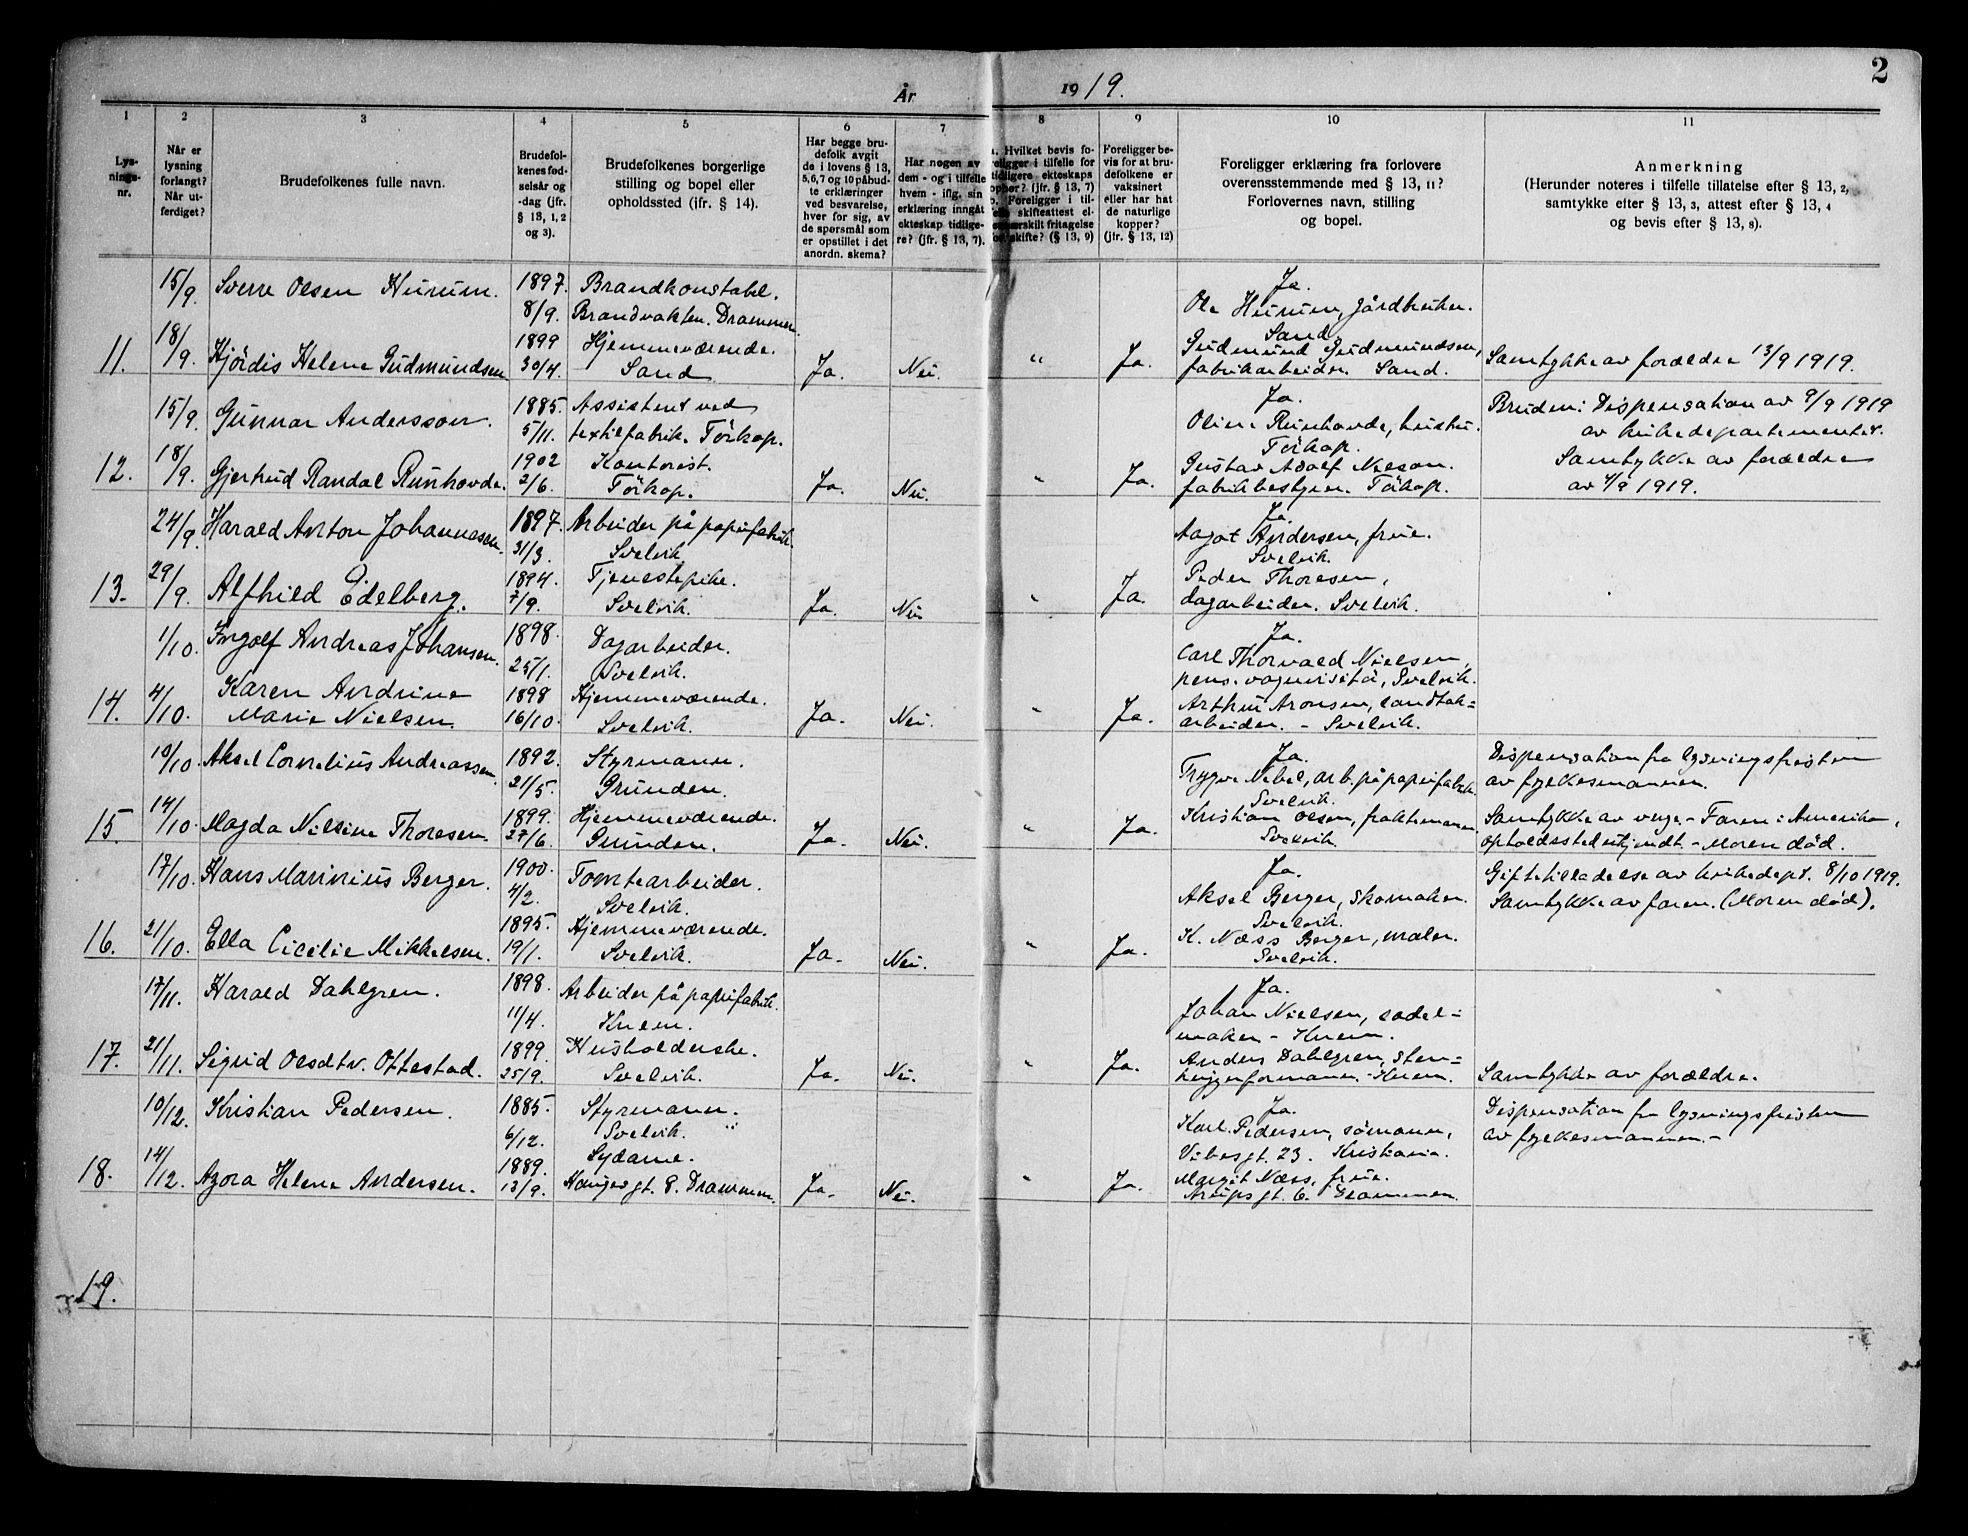 2
År 1919.
1 2 3 4 5 6 7 8 9 10 11
Lysningsnr.
Når er lysning forlangt? Når utferdiget?
Brudefolkenes fulle navn.
Brudefolkenes fødselsår og -dag (jfr. § 13, 1, 2 og 3).
Brudefolkenes borgerlige stilling og bopel eller opholdssted (jfr. § 14).
Har begge brudefolk avgit de i lovens § 13, 5, 6, 7 og 10 påbudte erklæringer ved besvarelse, hver for sig, av de spørsmål som er opstillet i det anordn. skema?
Har nogen av dem - og i tilfelle hvem - iflg. sin erklæring inngåt ekteskap tidligere? (jfr. § 13, 7).
Hvilket bevis foreligger i tilfelle for tidligere ekteskaps (jfr. § 13, 7) Foreligger i skifteattest fritagelse skifte? (§ 13, 9)
Foreligger bevis for at brudefolkene er vaksinert eller har hat de naturlige kopper? (jfr. § 13, 12)
Foreligger erklæring fra forlovere overensstemmende med § 13, 11? Forlovernes navn, stilling og bopel.
Anmerkning (Herunder noteres i tilfelle tillatelse efter § 13, 2, samtykke efter § 13, 3, attest efter § 13, 4 og bevis efter § 13, 8).
15/9. Sverre Olsen Hurum. 1897. 8/9. Brandkonstabel. Brandvakten. Drammen. Ja. Ole Hurum, gårdbruker. Sand
11. 18/9. Hjördis Helene Gudmundsen 1899 30/4. Hjemmeværende. Sand Ja. Nei. " Ja. Gudmund Gudmundsen, fabrikarbeider. Sand. Samtykke av forældre 13/9 1919.
15/9. Gunnar Andersson. 1885. 5/11. Assistent ved textilfabrik. Törkop. Ja. Oline Runhovde, hustru. Törkop. Bruden: Dispensation av 9/9 1919 av kirkedepartementet.
12. 18/9. Gjertrud Randal Runhovde. 1902 2/6. Kontorist. Törkop. Ja. Nei. " Ja. Gustav Adolf Nilson. fabrikbestyrer. Törkop. Samtykke av forældre av 4/9 1919.
24/9. Harald Anton Johannesen. 1897. 31/3. Arbeider på papirfabrik. Svelvik Ja. Aagot Andersen, frue. Svelvik.
13. 29/9. Alfhild Edelberg. 1894. 7/9. Tjenestepike. Svelvik. Ja. Nei " Ja. Peder Thoresen, dagarbeider. Svelvik.
1/10. Ingolf Andreas Johansen. 1898. 25/1. Dagarbeider. Svelvik. Ja. Carl Thorvald Nielsen, pens. vognvisitø, Svelvik.
14. 4/10. Karen Andrine Marie Nielsen. 1898 16/10. Hjemmeværende. Svelvik. Ja. Nei. " Ja. Arthur Aronsen, arbeider. - Svelvik.
10/10. Aksel Cornelius Andreassen. 1892. 21/5. Styrmann. Grunden. Ja. Trygve Nebel, arb. på papirfabrik. Svelvik. Dispensation fra lysningsfristen av fylkesmannen.
15. 14/10. Magda Nilsine Thoresen. 1899. 27/6. Hjemmeværende. Grunden. Ja. Nei. " Ja. Kristian Olsen, fraktemann. Svelvik. Samtykke av verge. - Faren i Amerika, opholdssted ukjendt. - Moren död.
17/10. Hans Marinius Berger. 1900. 4/2. Tomtearbeider. Svelvik. Ja. Aksel Berger, skomaker. Svelvik. Giftetilladelse av kirkedept. 8/10 1919. Samtykke av faren. (Moren död).
16. 21/10. Ella Cicilie Mikkelsen. 1895. 19/1. Hjemmeværende. Svelvik. Ja. Nei. " Ja. K. Næss Berger, maler. Svelvik.
17/11. Harald Dahlgren. 1898. 11/4. Arbeider på papirfabrik. Knem. Ja. Johan Nielsen, sadelmaker - Knem.
17. 21/11. Sigrid Olsdtr. Ottestad. 1899. 25/9. Husholderske. Svelvik. Ja. Nei. " Ja. Anders Dahlgren, stenhuggerformann. - Knem. Samtykke av forældre.
10/12. Kristian Pedersen. 1885. 6/12. Styrmann. Svelvik. Ja. Karl Pedersen, sømann, Vibesgt. 23. Kristiania. Dispensation fra lysningsfristen av fylkesmannen. -
18. 14/12. Azora Helene Andersen. 1889. 13/9. Sydame. Haugesgt. 8. Drammen. Ja. Nei. " Ja. Margit Næss, frue. Arupsgt. 6. Drammen.
19.